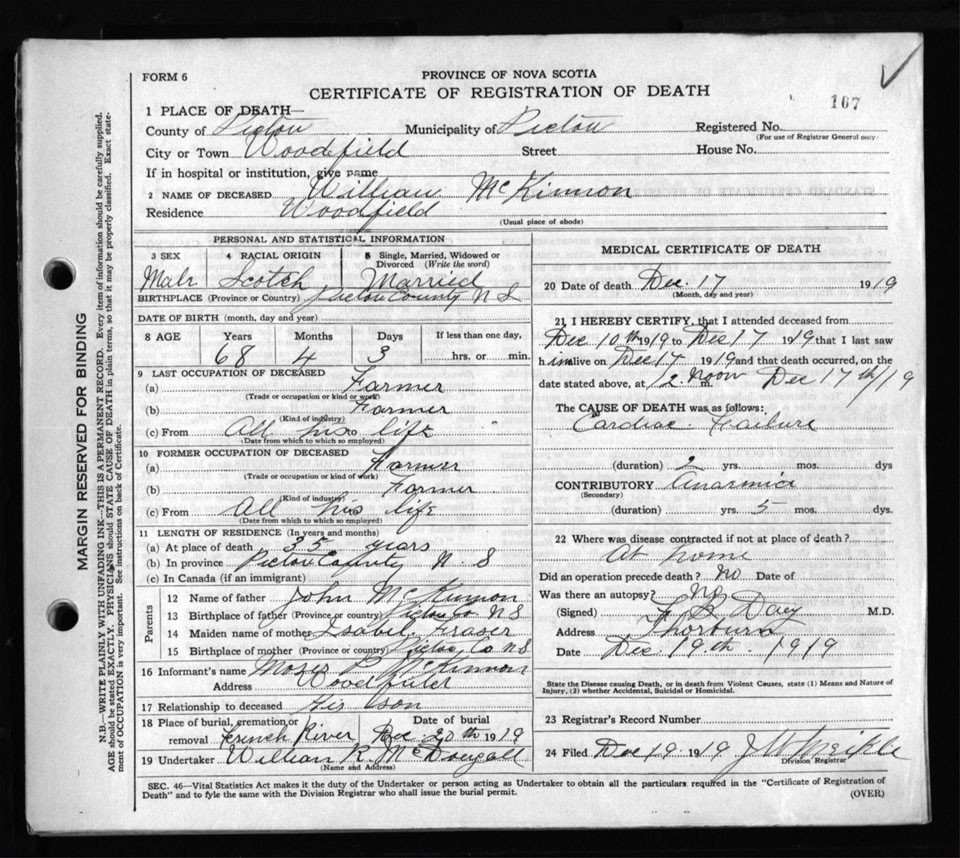 FORM 6
PROVINCE OF NOVA SCOTIA
CERTIFICATE OF REGISTRATION OF DEATH
167
1 PLACE OF DEATH—
County of Pictou Municipality of Pictou Registered No.
(For use of Registrar General only.)
City or Town Woodfield Street House No.
If in hospital or institution, give name
2 NAME OF DECEASED William McKinnon
Residence Woodfield
(Usual place of abode)
PERSONAL AND STATISTICAL INFORMATION
3 SEX 4 RACIAL ORIGIN 5 Single, Married, Widowed or Divorced (Write the word)
Male Scotch Married
BIRTHPLACE (Province or Country) Pictou County N S
DATE OF BIRTH (month, day and year)
8 AGE Years Months Days If less than one day,
68 4 3 hrs. or min.
9 LAST OCCUPATION OF DECEASED
(a) Farmer
(Trade or occupation or kind of work)
(b) Farmer
(Kind of industry)
(c) From All his to life
(Date from which to which so employed)
10 FORMER OCCUPATION OF DECEASED
(a) Farmer
(Trade or occupation or kind of work)
(b) Farmer
(Kind of industry)
(c) From All his life
(Date from which to which so employed)
11 LENGTH OF RESIDENCE (In years and months)
(a) At place of death 35 years
(b) In province Pictou County N. S
(c) In Canada (if an immigrant)
Parents
12 Name of father John McKinnon
13 Birthplace of father (Province or country) Pictou Co N S
14 Maiden name of mother Isabel Fraser
15 Birthplace of mother (Province or country) Pictou Co N S
16 Informant's name Moses P. McKinnon
Address Woodfield
17 Relationship to deceased His Son
18 Place of burial, cremation or removal French River Date of burial Dec 20th 1919
19 Undertaker William R. McDougall
(Name and Address)
MEDICAL CERTIFICATE OF DEATH
20 Date of death Dec. 17 1919
(Month, day and year)
21 I HEREBY CERTIFY, that I attended deceased from
Dec 10th 1919 to Dec 17 1919 that I last saw
him alive on Dec 17 1919 and that death occurred, on the
date stated above, at 12 noon m. Dec 17th/19
The CAUSE OF DEATH was as follows:
Cardiac Failure
(duration) 2 yrs. mos. dys
CONTRIBUTORY Anaemia
(Secondary)
(duration) yrs. 5 mos. dys.
22 Where was disease contracted if not at place of death?
At home
Did an operation precede death? No Date of
Was there an autopsy? No
(Signed) Day M.D.
Address Thorburn
Date Dec. 19th. 1919
State the Disease causing Death, or in death from Violent Causes, state (1) Means and Nature of
Injury, (2) whether Accidental, Suicidal or Homicidal.
23 Registrar's Record Number
24 Filed Dec 19 1919
Division Registrar
SEC. 46—Vital Statistics Act makes it the duty of the Undertaker or person acting as Undertaker to obtain all the particulars required in the "Certificate of Registration of
Death" and to fyle the same with the Division Registrar who shall issue the burial permit.
(OVER)
MARGIN RESERVED FOR BINDING
N.B.—WRITE PLAINLY WITH UNFADING INK—THIS IS A PERMANENT RECORD. Every item of information should be carefully supplied.
AGE should be stated EXACTLY. PHYSICIANS should STATE CAUSE OF DEATH in plain terms, so that it may be properly classified. Exact state-
ment of OCCUPATION is very important. See instructions on back of Certificate.